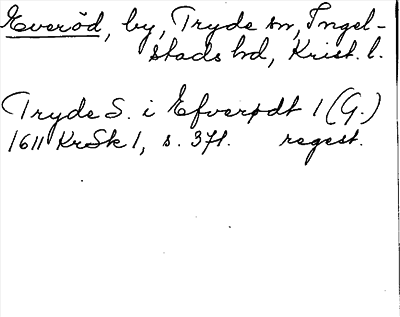 Everöd, by, Tryde sn, Ingel-
stads hd, Krist. l.
Tryde S. i Efverødt 1 (G.)
1611 KrSk 1, s. 371. regest.